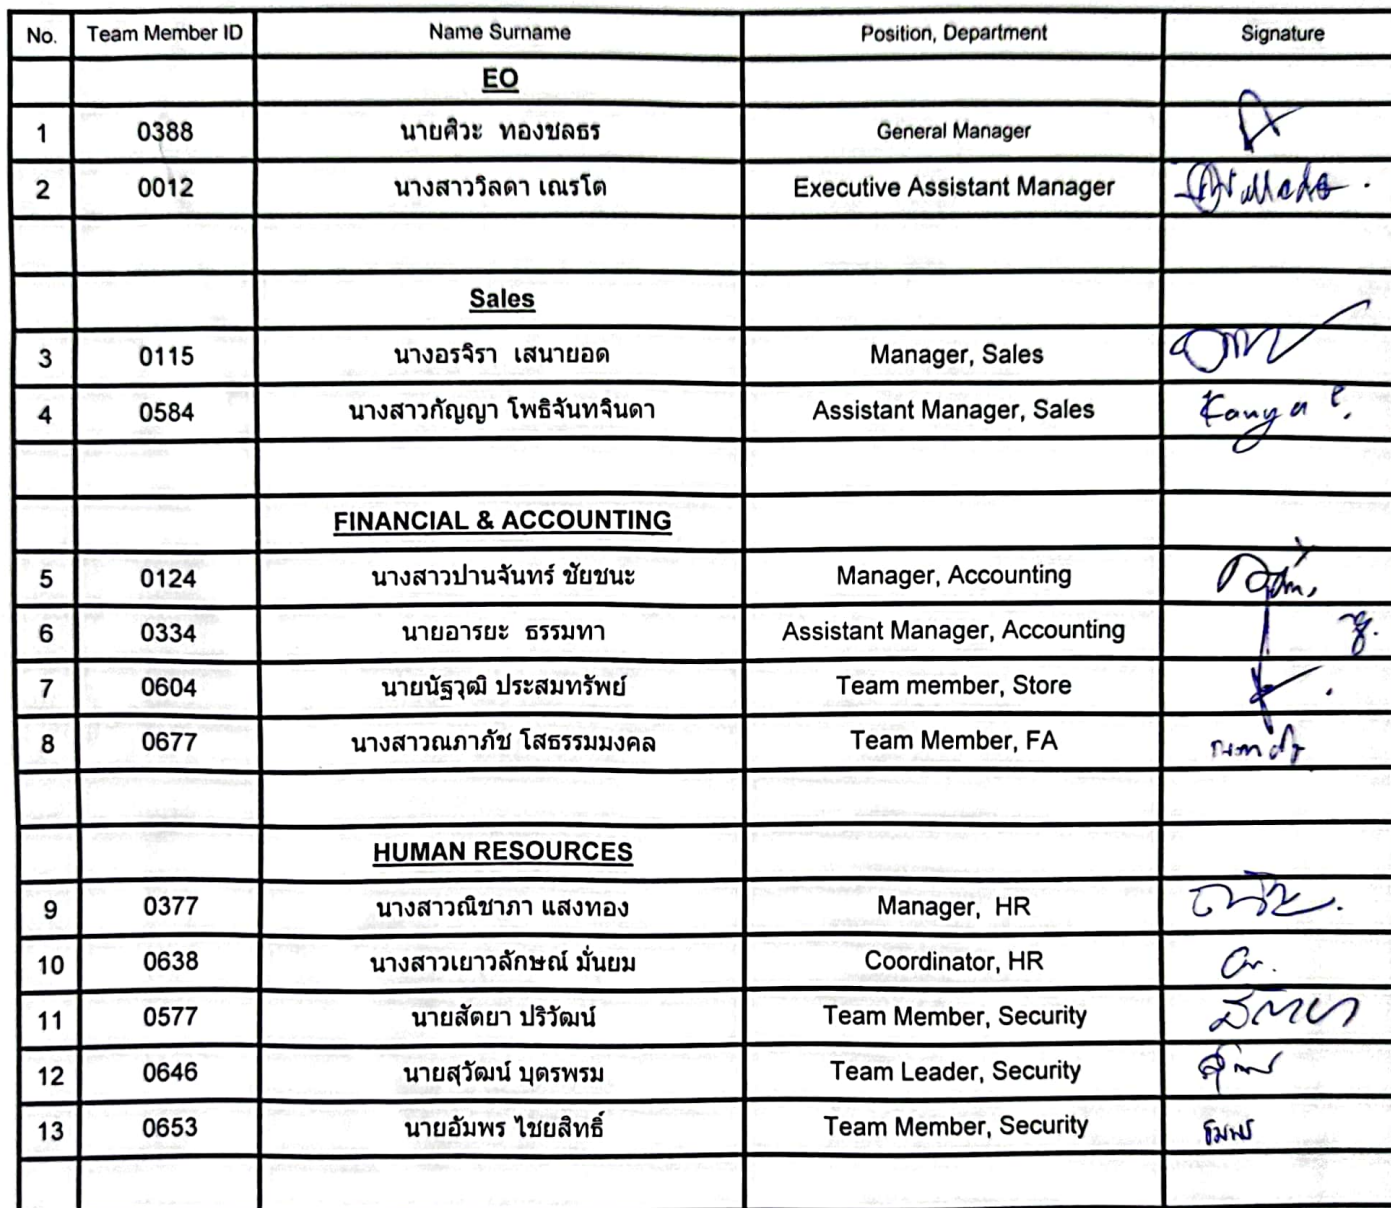 No. Team Member ID Name Surname Position, Department Signature
EO
1 0388 นายศิวะ ทองชลธร General Manager
2 0012 นางสาววิลดา เณรโต Executive Assistant Manager
Sales
3 0115 นางอรจิรา เสนายอด Manager, Sales
4 0584 นางสาวกัญญา โพธิจันทจินดา Assistant Manager, Sales Kanya P.
FINANCIAL & ACCOUNTING
5 0124 นางสาวปานจันทร์ ชัยชนะ Manager, Accounting
6 0334 นายอารยะ ธรรมทา Assistant Manager, Accounting
7 0604 นายนัฐวุฒิ ประสมทรัพย์ Team member, Store
8 0677 นางสาวณภาภัช โสธรรมมงคล Team Member, FA
HUMAN RESOURCES
9 0377 นางสาวณิชาภา แสงทอง Manager, HR
10 0638 นางสาวเยาวลักษณ์ มั่นยม Coordinator, HR
11 0577 นายสัตยา ปริวัฒน์ Team Member, Security สัตยา
12 0646 นายสุวัฒน์ บุตรพรม Team Leader, Security
13 0653 นายอัมพร ไชยสิทธิ์ Team Member, Security